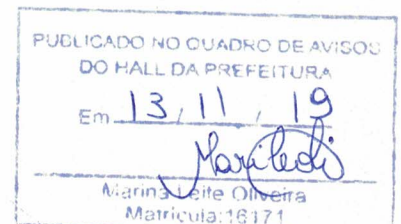 PUBLICADO NO QUADRO DE AVISOS
DO HALL DA PREFEITURA
Em 13, 11, 19
Marina Leite Oliveira
Matricula:16171